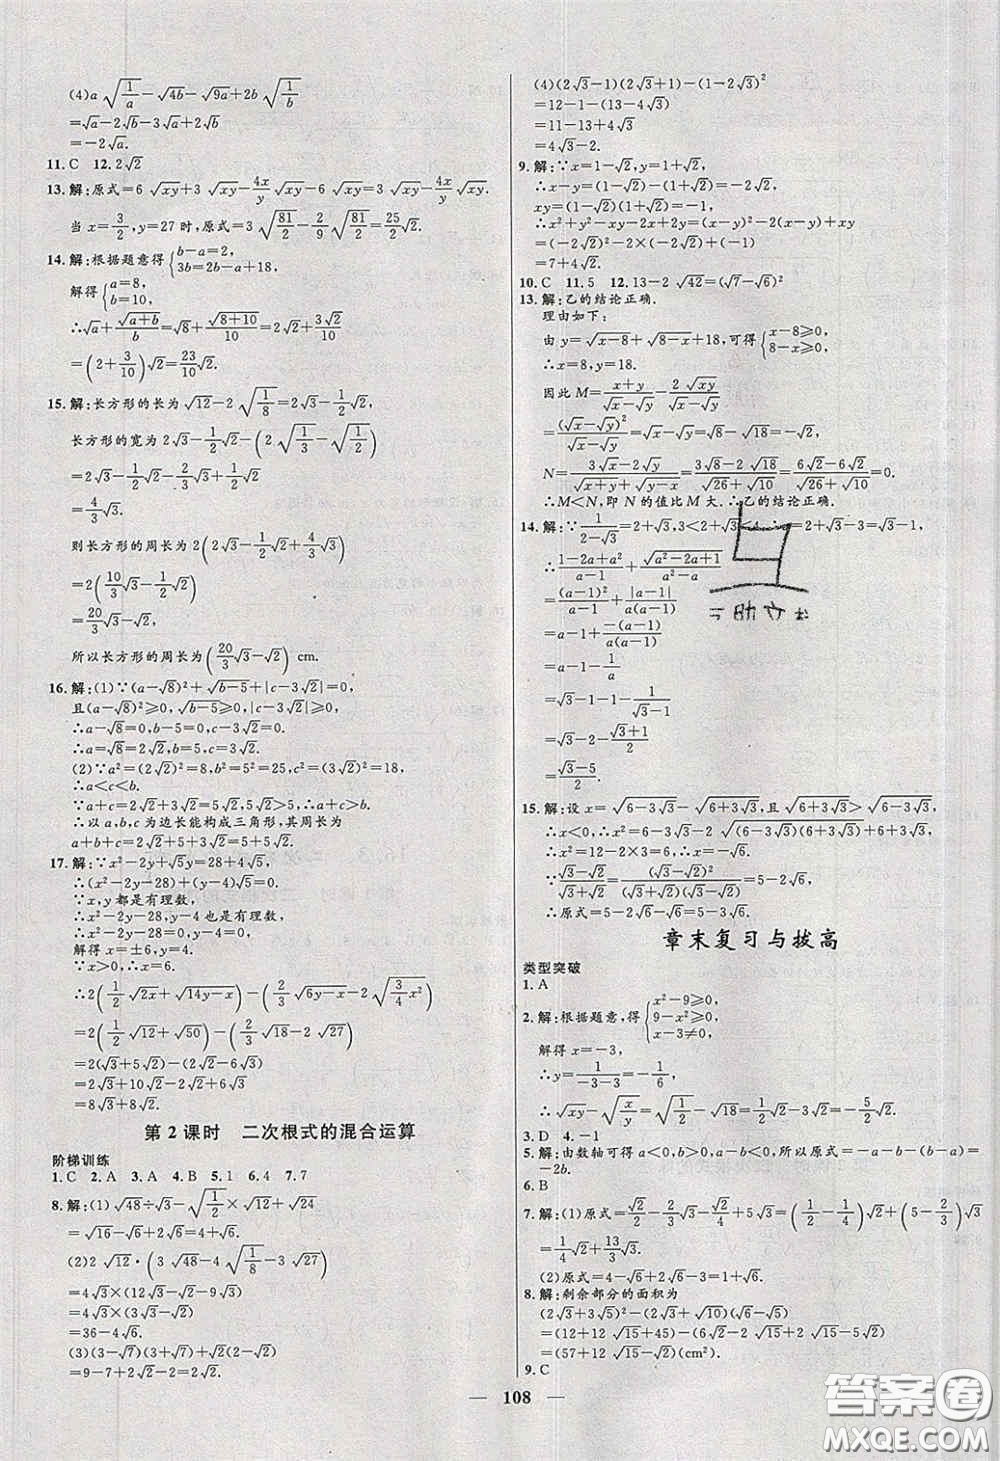 (4)a√(1/a)-√4b-√9a+2b√(1/b)
=√a-2√b-3√a+2√b
=-2√a.
11.C 12.2√2
13.解:原式=6√xy+3√xy-4x/y√xy-6√xy=3√xy-4x/y√xy.
当x=3/2,y=27时,原式=3√(81/2)-2/9√(81/2)=25/2√2.
14.解:根据题意得{b-a=2, 3b=2b-a+18,
解得{a=8, b=10,
∴√a+√(a+b)/b=√8+√(8+10)/10=2√2+3√2/10
=(2+3/10)√2=23/10√2.
15.解:长方形的长为√12-2√(1/8)=2√3-1/2√2,
长方形的宽为2√3-1/2√2-(2√(1/3)-√(1/2))
=2√3-1/2√2-2/3√3+1/2√2
=4/3√3.
则长方形的周长为2(2√3-1/2√2+4/3√3)
=2(10/3√3-1/2√2)
=20/3√3-√2,
所以长方形的周长为(20/3√3-√2)cm.
16.解:(1)∵(a-√8)²+√(b-5)+|c-3√2|=0,
且(a-√8)²≥0,√(b-5)≥0,|c-3√2|≥0,
∴a-√8=0,b-5=0,c-3√2=0.
∴a=√8=2√2,b=5,c=3√2.
(2)∵a²=(2√2)²=8,b²=5²=25,c²=(3√2)²=18,
∴a<c<b.
∵a+c=2√2+3√2=5√2>5,
∴以a,b,c为边长能构成三角形,其周长为
a+b+c=2√2+5+3√2=5√2+5.
17.解:∵x²-2y+√5y=28+4√5,
∴(x²-2y-28)+√5(y-4)=0.
∵x,y都是有理数,
∴x²-2y-28,y-4也是有理数,
∴x²-2y-28=0,y-4=0.
解得x=±6,y=4.
∵x>0,∴x=6.
∴2(1/2√2x+√(14y-6))-(2/3√(6y-x)-2√(3/4x²))
=2(1/2√12+√50)-(2/3√18-2√27)
=2(√3+5√2)-(2√2-6√3)
=2√3+10√2-2√2+6√3
=8√3+8√2.
第2课时 二次根式的混合运算
阶梯训练
1.C 2.A 3.A 4.B 5.1 6.4 7.7
8.解:(1)√48÷√3-√(1/2)×√12+√24
=√16-√6+2√6=4+√6.
(2)2√12·(3√48-4√(1/8)-3√27)
=4√3×(12√3-√2-9√3)
=4√3×(3√3-√2)
=36-4√6.
(3)(3+√2)(3-√2)+√2(1-√2)
=9-2+√2-2=7-2+√2=5+√2.
(4)(2√3-1)(2√3+1)-(1-2√3)²
=12-1-(13-4√3)
=11-13+4√3
=4√3-2.
9.解:∵x=1-√2,y=1+√2,
∴x-y=(1-√2)-(1+√2)=-2√2,
xy=(1-√2)(1+√2)=-1,
∴x²+y²-xy-2x+2y=(x-y)²-2(x-y)+xy
=(-2√2)²-2×(-2√2)+(-1)
=7+4√2.
10.C 11.5 12.13-2√42=(√7-√6)²
13.解:乙的结论正确.
理由如下:
由y=√(x-8)+√(8-x)+18,可得{x-8≥0, 8-x≥0.
∴x=8,y=18.
因此M=(x+y)/(√x-√y)-2√xy/(√x-√y)
=(√x-√y)²/(√x-√y)=√x-√y=√8-√18=-√2,
N=(3√x-2√y)/(√(x+y)+√(y-x))=(3√8-2√18)/(√26+√10)=(6√2-6√2)/(√26+√10)=0.
∴M<N,即N的值比M大.∴乙的结论正确.
14.解:∵1/(2-√3)=2+√3,3<2+√3<4,∴a=2+√3-3=√3-1,
∴(1-2a+a²)/(a-1)+√(a²-2a+1)/(a²-a)
=(a-1)²/(a-1)+|a-1|/a(a-1)
=a-1+-(a-1)/a(a-1)
=a-1-1/a
=√3-1-1-1/(√3-1)
=√3-2-(√3+1)/2
=(√3-5)/2.
15.解:设x=√(6-3√3)-√(6+3√3),且√(6+3√3)>√(6-3√3),
∴x<0,∴x²=6-3√3-2√((6-3√3)(6+3√3))+6+3√3,
∴x²=12-2×3=6,∴x=-√6.
∵(√3-√2)/(√3+√2)=(√3-√2)²/(√3+√2)(√3-√2)=5-2√6,
∴原式=5-2√6-√6=5-3√6.
章末复习与拔高
类型突破
1.A
2.解:根据题意,得{x²-9≥0, 9-x²≥0, x-3≠0.
解得x=-3,
∴y=1/(-3-3)=-1/6.
∴√xy-√(x/y)=√(1/2)-√18=1/2√2-3√2=-5/2√2.
3.D 4.-1
5.解:由数轴可得a<0,b>0,a-b<0,则原式=-a-b-(b-a)=
-2b.
6.B
7.解:(1)原式=√2/2-2/3√3-√2/4+5√3=(1/2-1/4)√2+(5-2/3)√3
=1/4√2+13/3√3.
(2)原式=4-√6+2√6=4+√6.
8.解:剩余部分的面积为
(2√3+3√5)²-(2√3+√10)(√6-√5)
=(12+12√15+45)-(6√2-2√15+2√15-5√2)
=(57+12√15-√2)(cm²).
9.C
108
答案圈
MXQE.COM